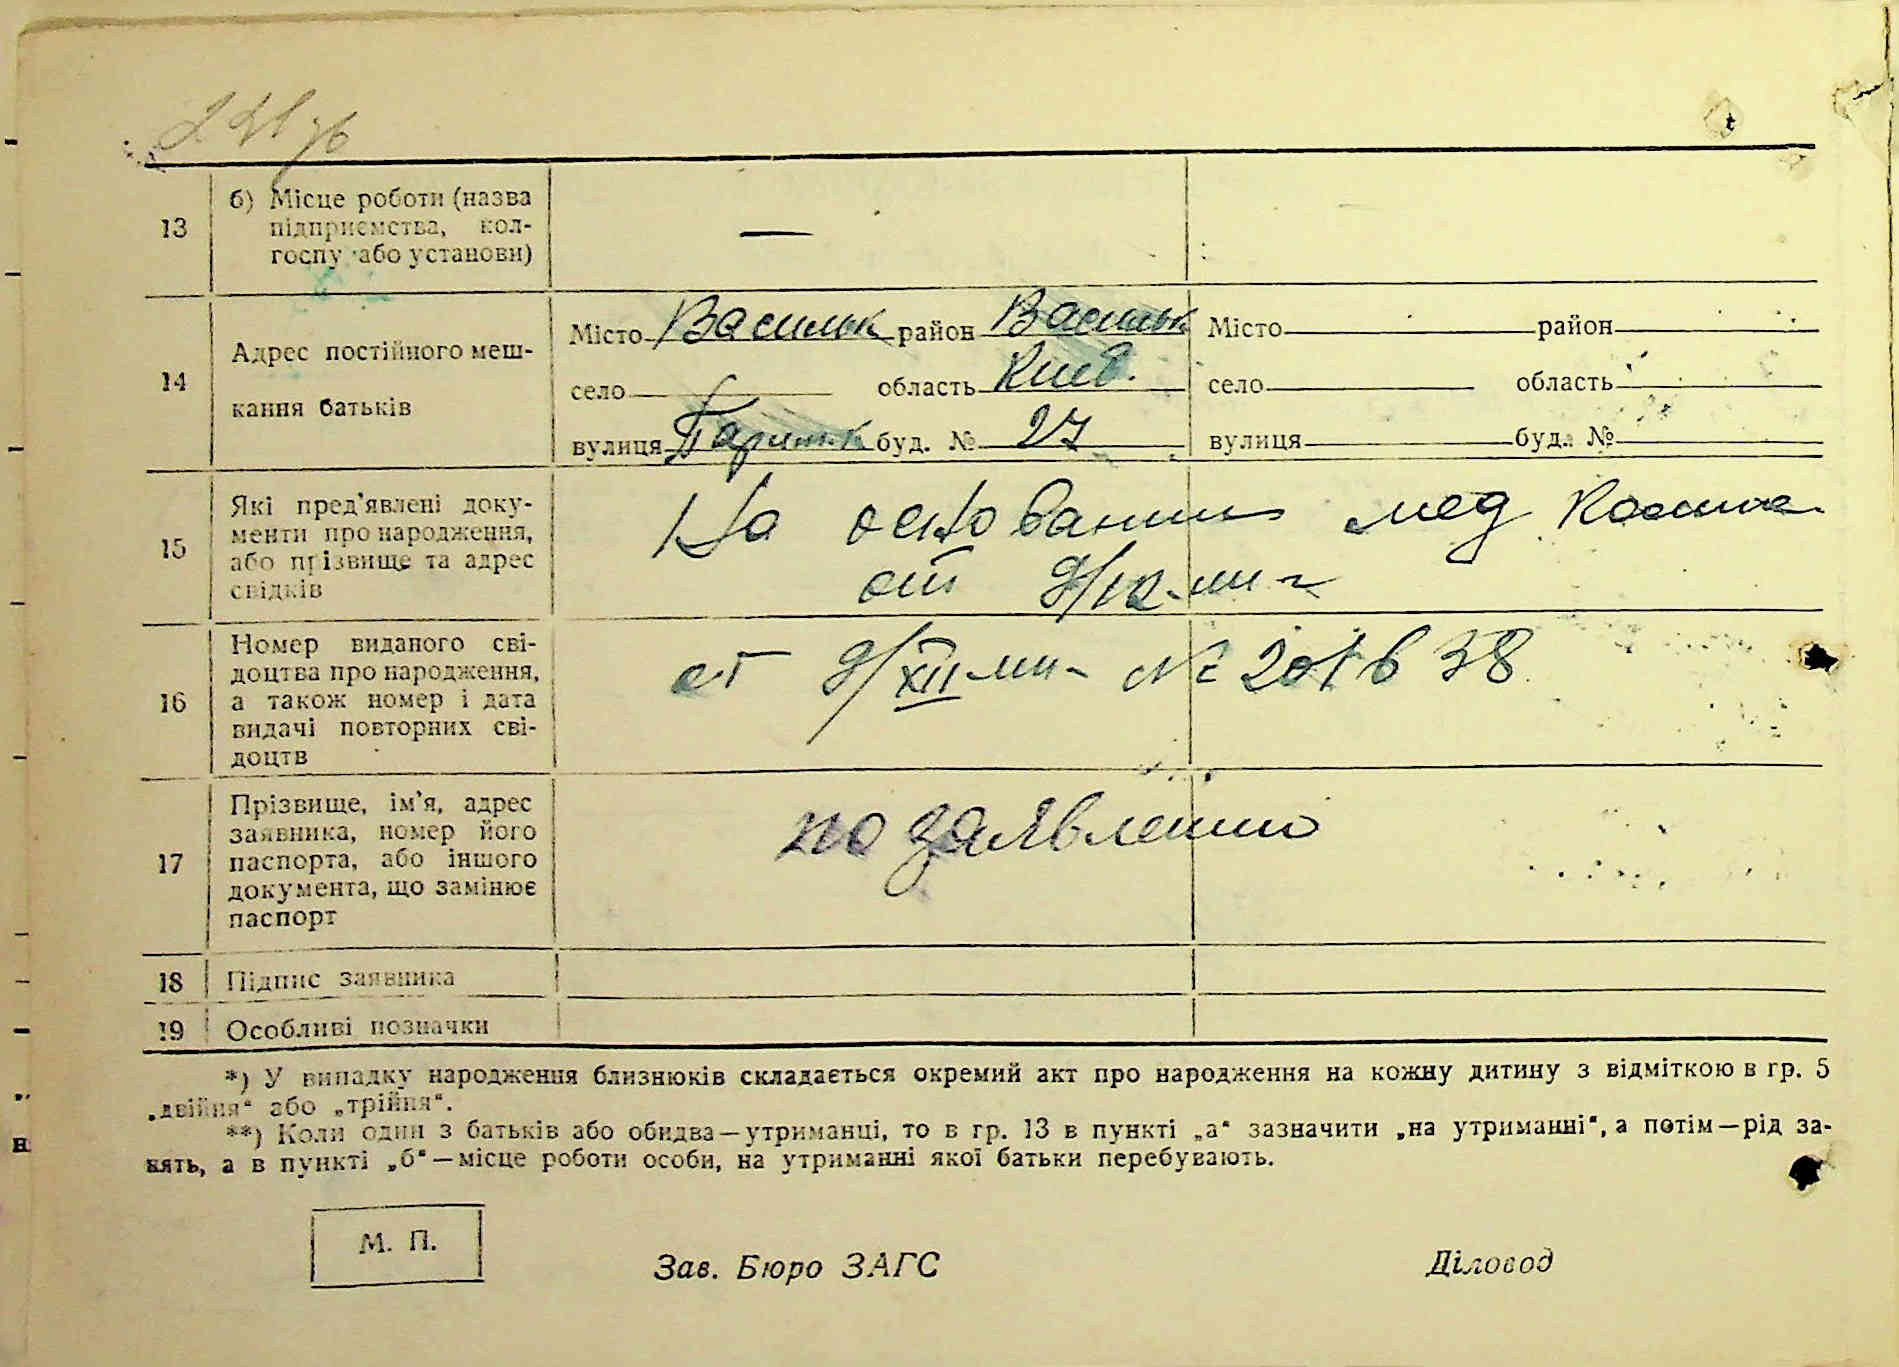 13
б) Місце роботи (назва
підприємства, кол-
госпу або установи)
—
14
Адрес постійного меш-
кання батьків
Місто Васильк район Васильк
село область Киев.
вулиця буд. № 27
Місто район
село область
вулиця буд. №
15
Які пред'явлені доку-
менти про народження,
або прізвище та адрес
свідків
На основании мед
от
16
Номер виданого сві-
доцтва про народження,
а також номер і дата
видачі повторних сві-
доцтв
от 9/XII №
17
Прізвище, ім'я, адрес
заявника, номер його
паспорта, або іншого
документа, що замінює
паспорт
по заявлению
18 Підпис заявника
19 Особливі позначки
*) У випадку народження близнюків складається окремий акт про народження на кожну дитину з відміткою в гр. 5
„двійня“ або „трійня“.
**) Коли один з батьків або обидва—утриманці, то в гр. 13 в пункті „а“ зазначити „на утриманні“, а потім—рід за-
нять, а в пункті „б“—місце роботи особи, на утриманні якої батьки перебувають.
М. П.
Зав. Бюро ЗАГС Діловод